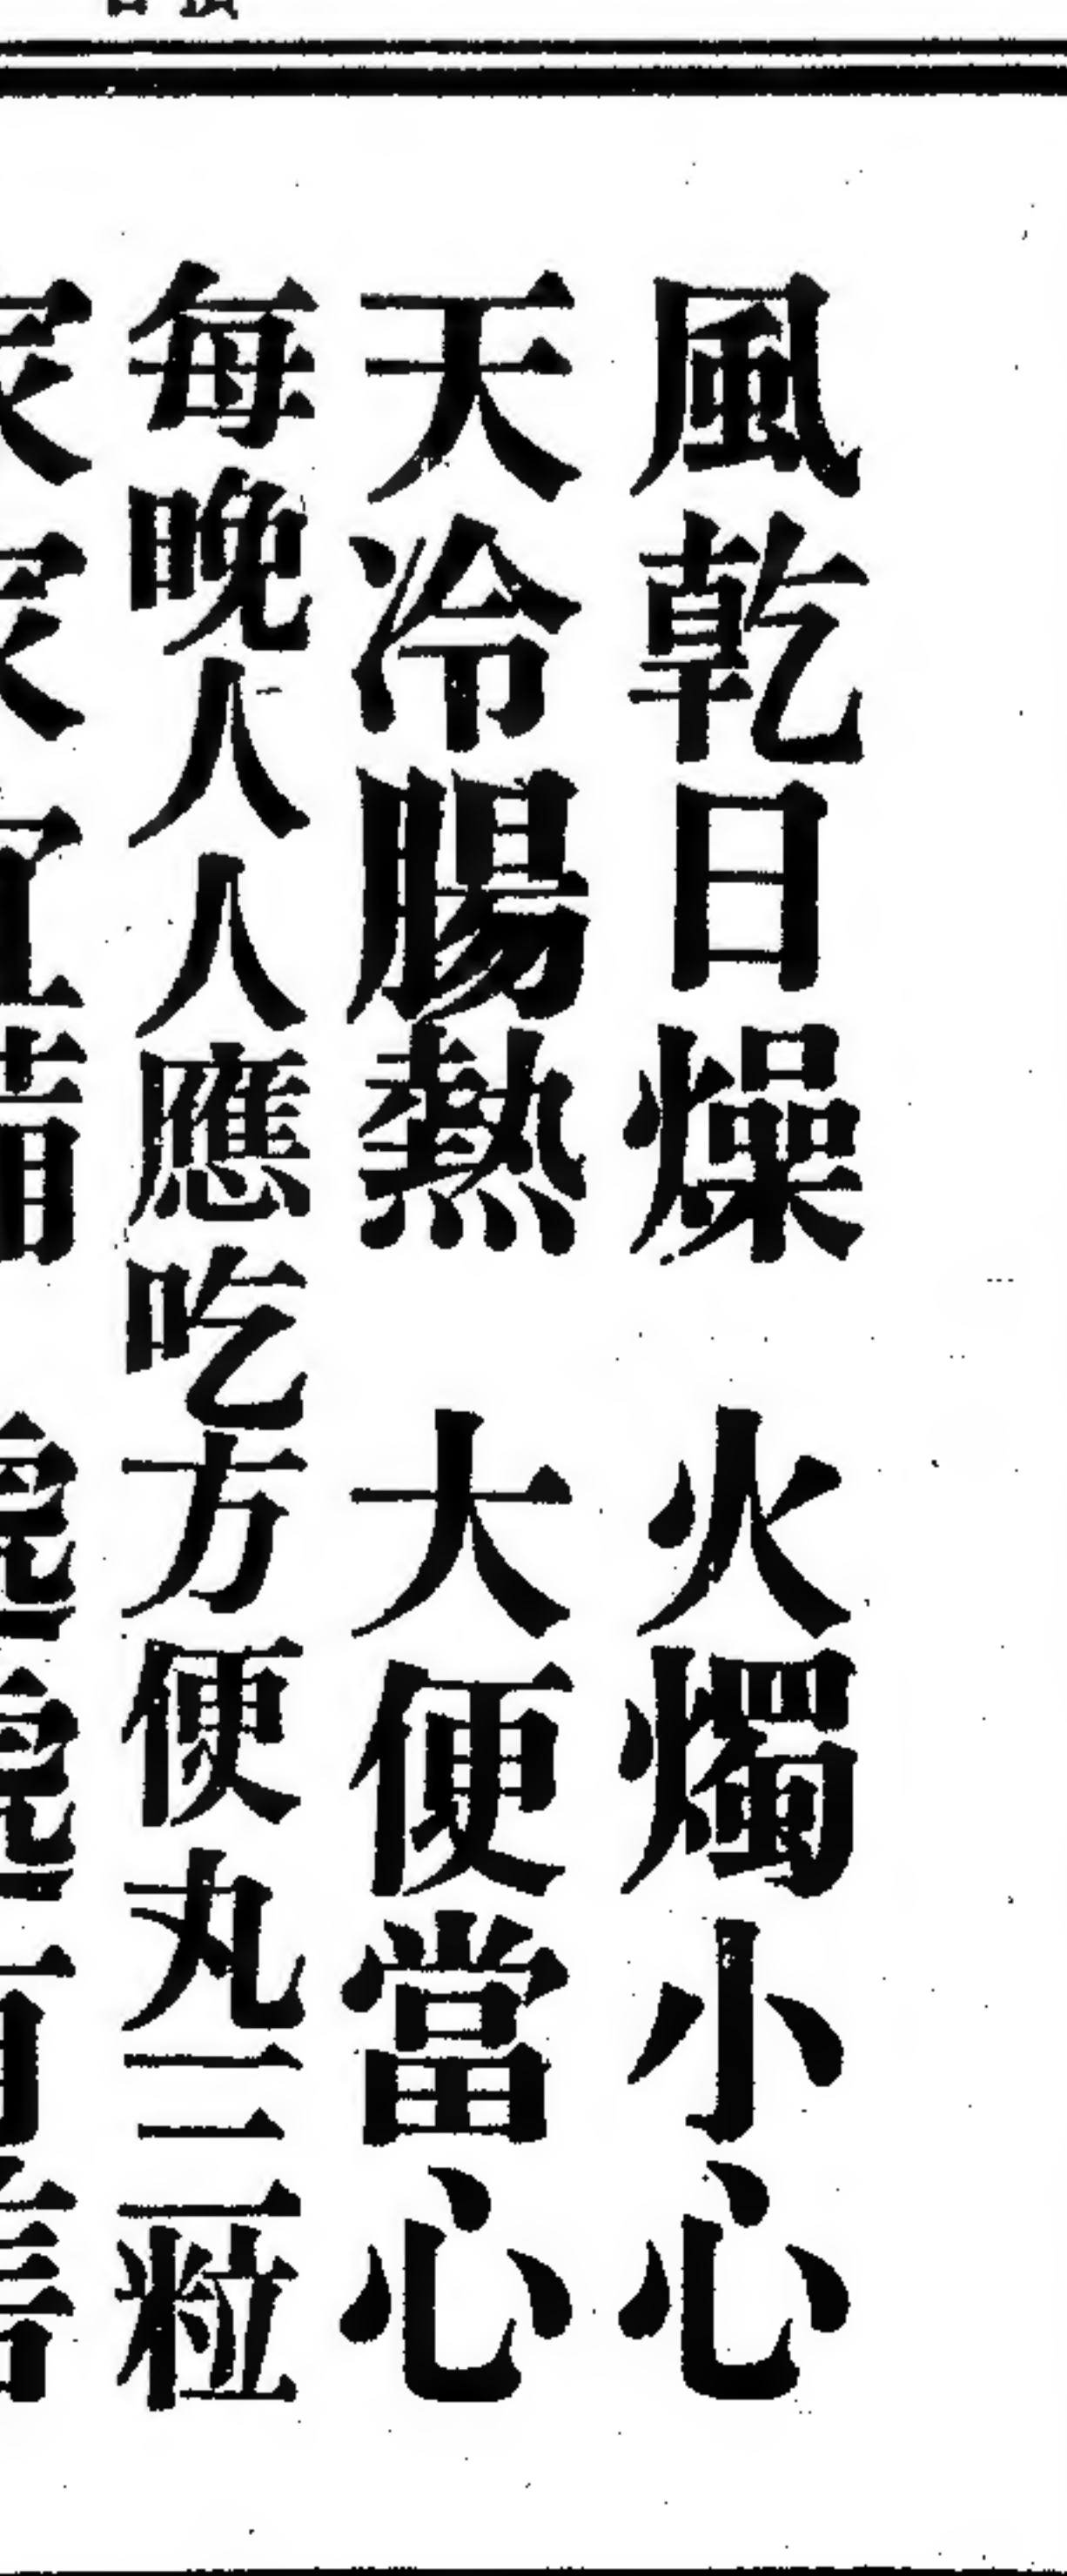 風乾日燥 火燭小心
天冷腸熱 大便當心
每晚人人應吃方便丸三粒